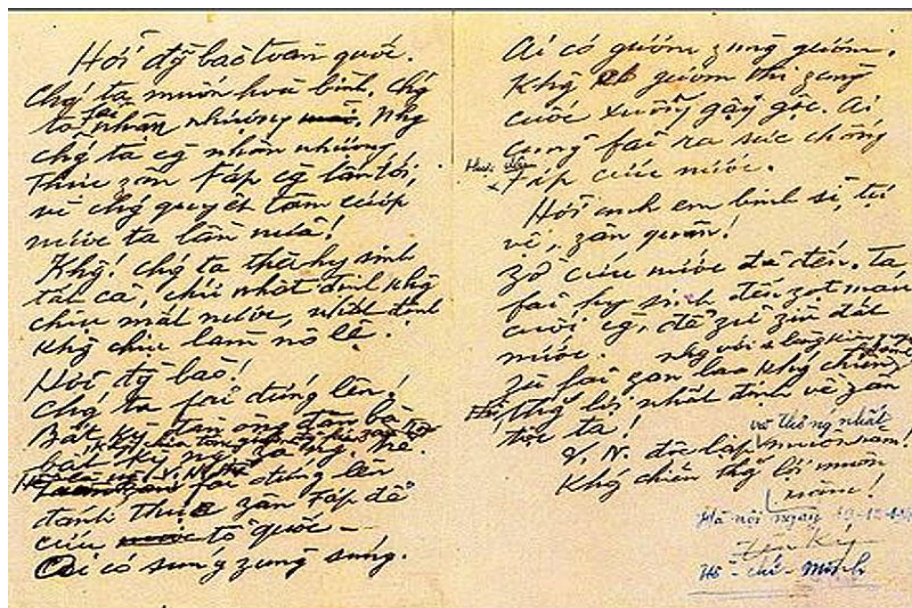 Hỡi đ̃g bào toàn quốc.
Chg' ta muốn hoà bình, chg'
ta fải nhân nhượng. Nhg
chg' ta cg̃ nhân nhượng,
thực zân Fáp cg̃ lấn tới,
vì chg' quyết tâm cướp
nước ta lần nữa!
Khg! Chg' ta thà hy sinh
tất cả, chứ nhất định khg
chịu mất nước, nhất định
khg chịu làm nô lệ.
Hỡi đg̀ bào!
Chg' ta fải đứng lên!
Bất kỳ đàn ông, đàn bà,
bất kỳ ng
fải đứng lên
đánh thực zân Fáp để
cứu tổ quốc –
Ai có súng zùng súng.
Ai có gươm zùng gươm.
Khg có gươm thì zùng
cuốc xuổng gậy gộc. Ai
cũng fải ra sức chống
Fáp cứu nước.
Hỡi anh em binh sĩ, tự
vệ, zân quân!
Zờ cứu nước đã đến. Ta
fải hy sinh đến zọt máu
cuối cg̀, để zữ zìn đất
nước.
Zù fải zan lao khg' chiến
nhg với 1 lòng kiên quyết
thg' lợi nhất định về zân
tộc ta!
V.N. độc lập và thống nhất muôn năm!
Khg' chiến thg' lợi muôn
năm!
Hà nội ngày 19-12-46
Hồ-chí-Minh